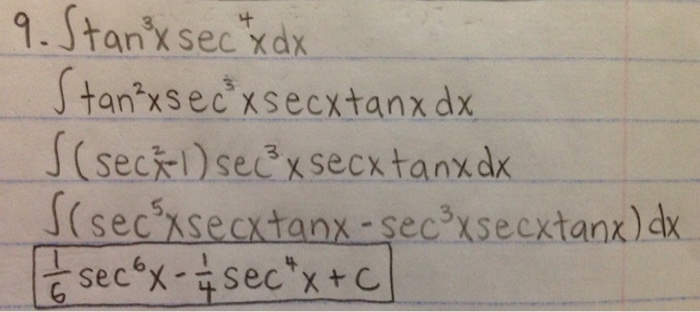 9. ∫tan³x sec⁴x dx
∫tan²x sec³x secx tanx dx
∫(sec²x-1) sec³x secx tanx dx
∫(sec⁵x secx tanx - sec³x secx tanx) dx
1/6 sec⁶x - 1/4 sec⁴x + C